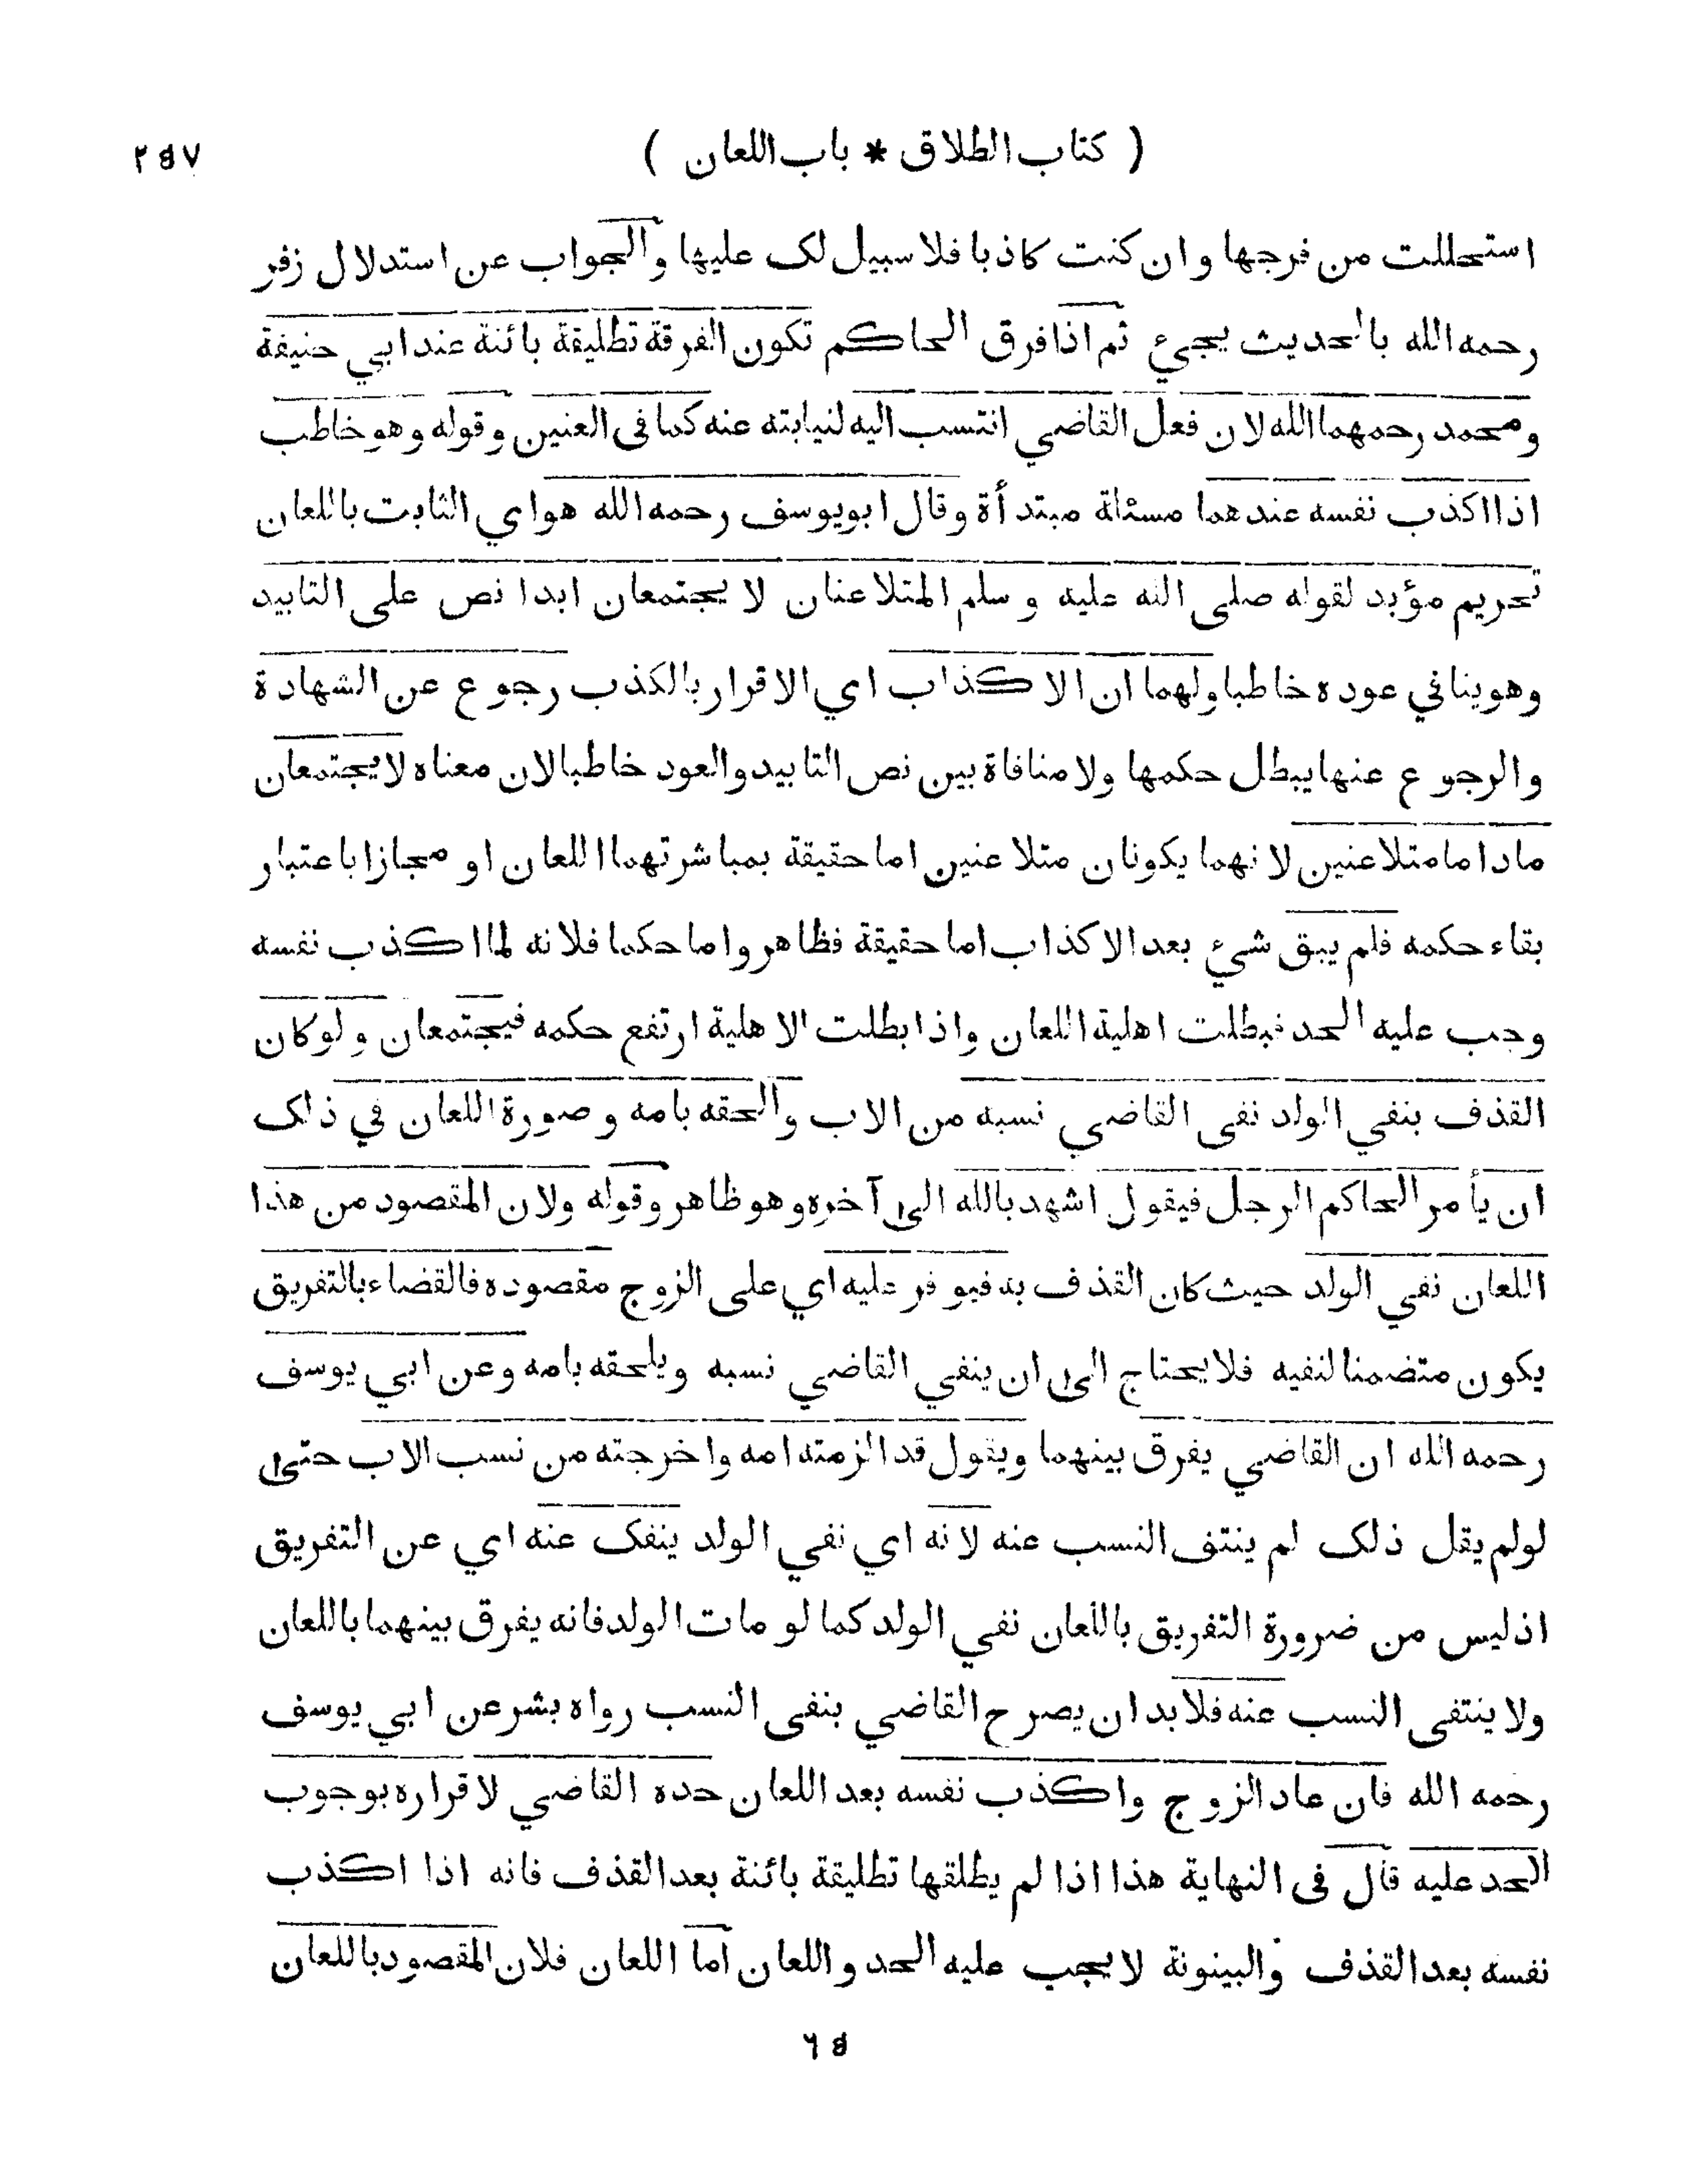 ( كتاب الطلاق * باب اللعان ) ٢٥٧
استحللت من فرجها وان كنت كاذبا فلا سبيل لك عليها والجواب عن استدلال زفر
رحمه الله بالحديث يجيء ثم اذا فرق الحاكم تكون الفرقة تطليقة بائنة عند ابي حنيفة
ومحمد رحمهما الله لان فعل القاضي انتسب اليه لنيابته عنه كما فى العنين وقوله وهو خاطب
اذا اكذب نفسه عندهما مسئلة مبتدأة وقال ابو يوسف رحمه الله هو اي الثابت باللعان
تحريم مؤبد لقوله صلى الله عليه وسلم المتلاعنان لا يجتمعان ابدا نص على التابيد
وهو ينافي عوده خاطبا ولهما ان الاكذاب اي الاقرار بالكذب رجوع عن الشهادة
والرجوع عنها يبطل حكمها ولا منافاة بين نص التابيد والعود خاطبا لان معناه لا يجتمعان
ماداما متلاعنين لانهما يكونان متلاعنين اما حقيقة بمباشرتهما اللعان او مجازا باعتبار
بقاء حكمه فلم يبق شيء بعد الاكذاب اما حقيقة فظاهر واما حكما فلانه لما اكذب نفسه
وجب عليه الحد فبطلت اهلية اللعان واذا بطلت الاهلية ارتفع حكمه فيجتمعان ولو كان
القذف بنفي الولد نفى القاضي نسبه من الاب والحقه بامه وصورة اللعان في ذلك
ان يأمر الحاكم الرجل فيقول اشهد بالله الى آخره وهو ظاهر وقوله ولان المقصود من هذا
اللعان نفي الولد حيث كان القذف به فيوفر عليه اي على الزوج مقصوده فالقضاء بالتفريق
يكون متضمنا لنفيه فلا يحتاج الى ان ينفي القاضي نسبه ويلحقه بامه وعن ابي يوسف
رحمه الله ان القاضي يفرق بينهما ويقول قد الزمته امه واخرجته من نسب الاب حتى
لو لم يقل ذلك لم ينتف النسب عنه لانه اي نفي الولد ينفك عنه اي عن التفريق
اذ ليس من ضرورة التفريق باللعان نفي الولد كما لو مات الولد فانه يفرق بينهما باللعان
ولا ينتفى النسب عنه فلا بد ان يصرح القاضي بنفى النسب رواه بشر عن ابي يوسف
رحمه الله فان عاد الزوج واكذب نفسه بعد اللعان حده القاضي لاقراره بوجوب
الحد عليه قال فى النهاية هذا اذا لم يطلقها تطليقة بائنة بعد القذف فانه اذا اكذب
نفسه بعد القذف والبينونة لا يجب عليه الحد واللعان اما اللعان فلان المقصود باللعان
٦٥